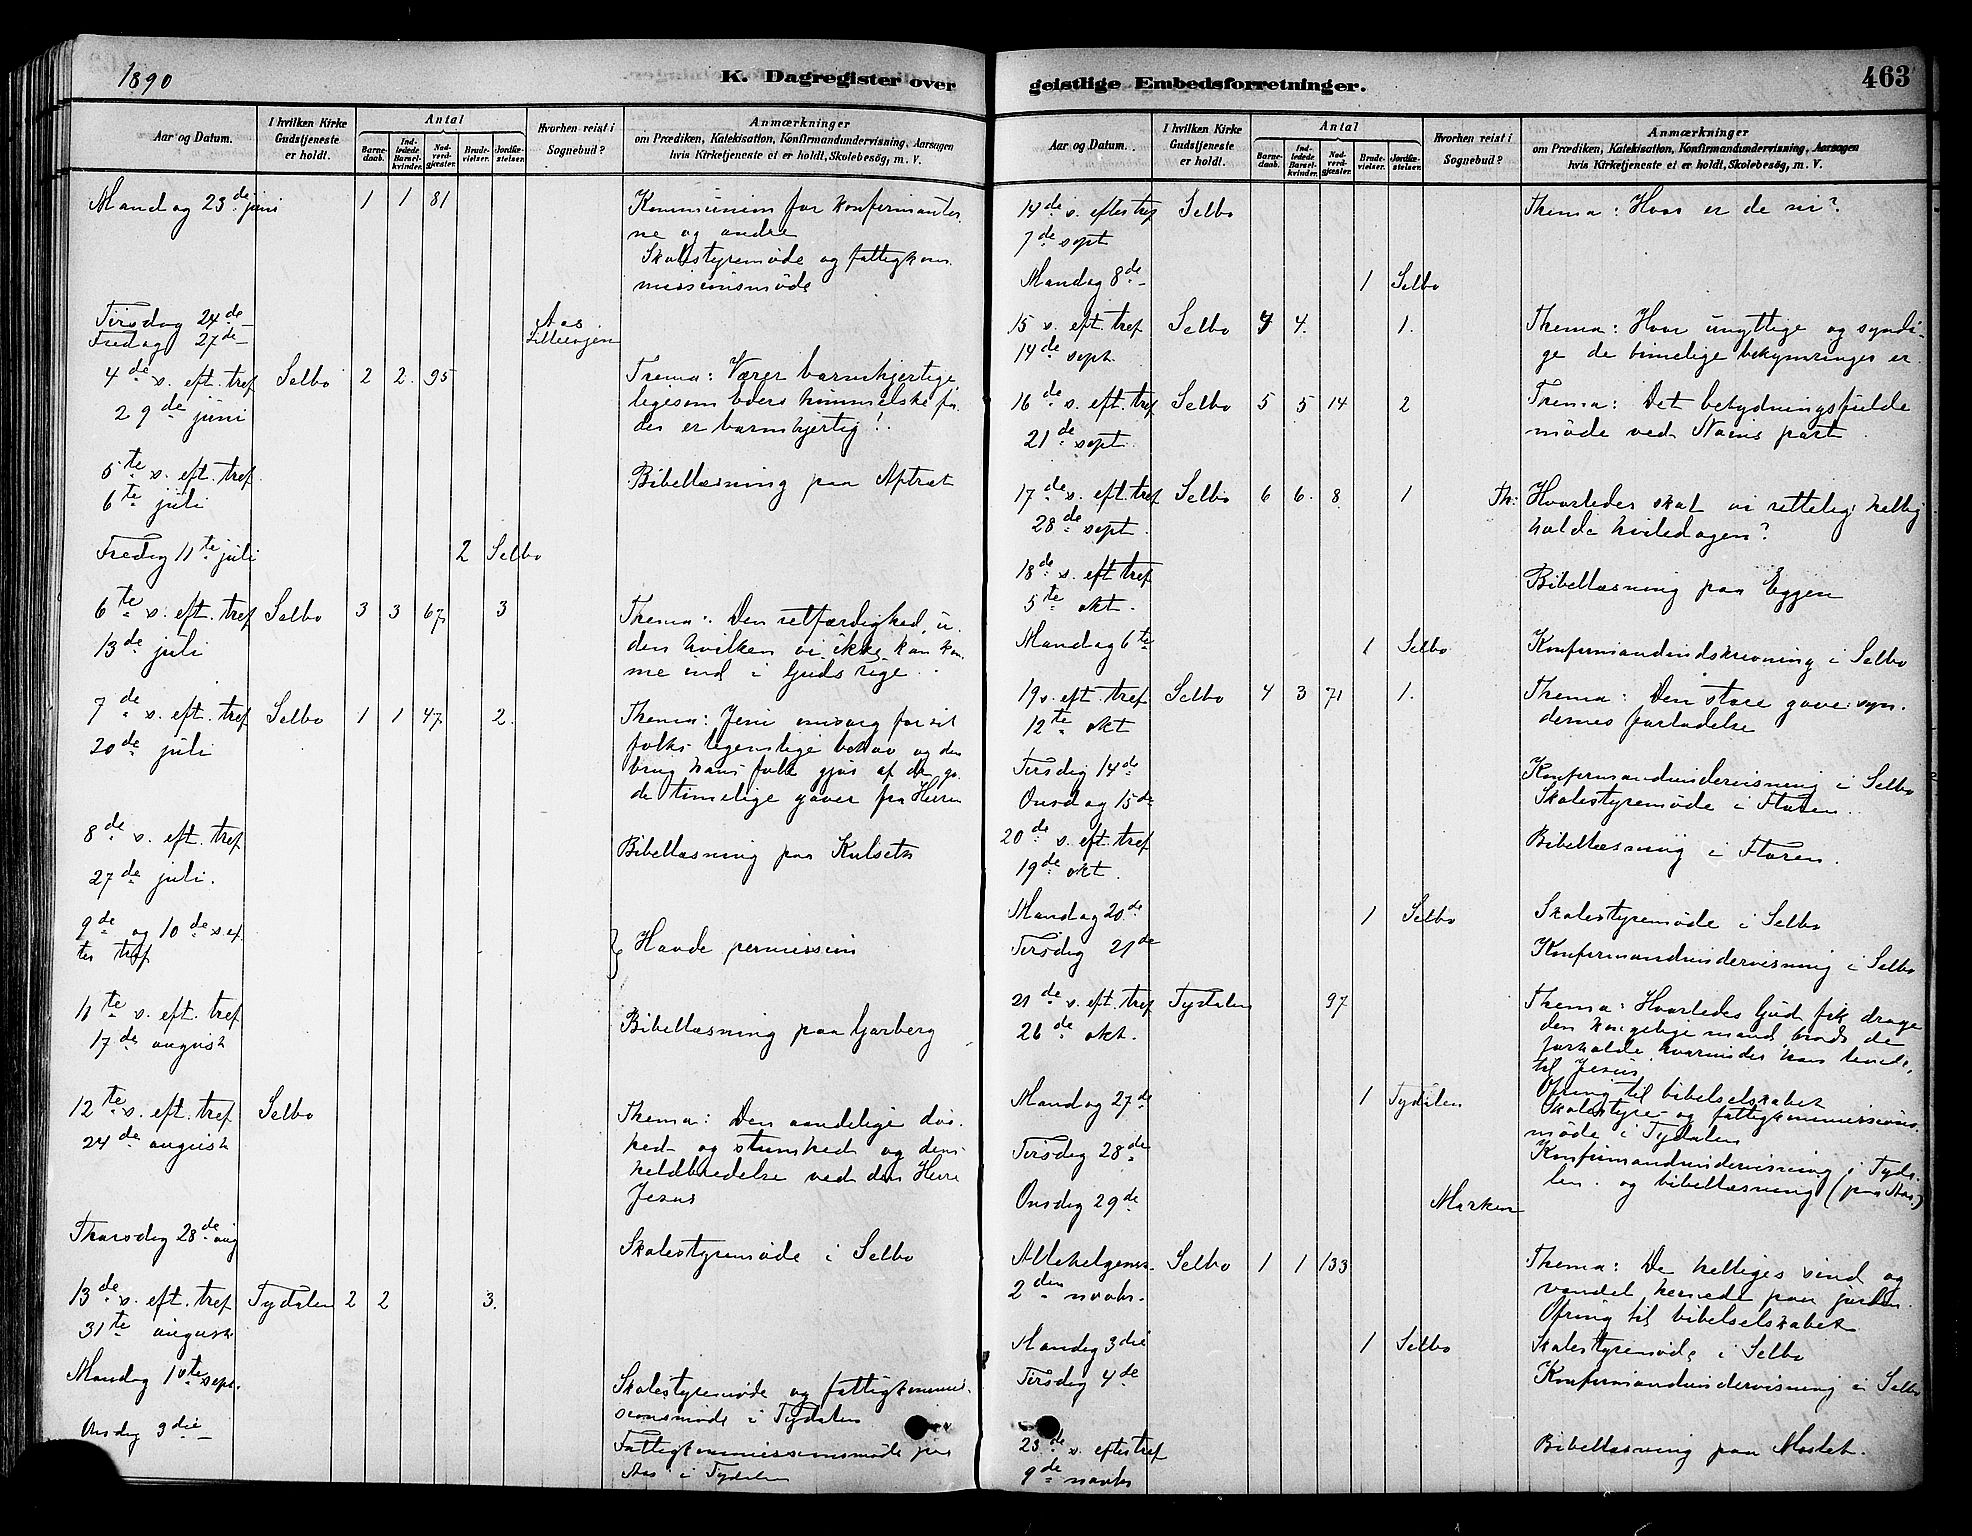 1890
K. Dagregister over
Aar og Datum.
I hvilken Kirke Gudstjeneste er holdt.
Antal
Barnedaab.
Indledede Barselkvinder.
Nadverdgjæster.
Brudevielser.
Jordfæstelser.
Hvorhen reist i Sognebud?
Anmærkninger
om Prædiken, Katekisation, Konfirmandundervisning, Aarsagen
hvis Kirketjeneste ei er holdt, Skolebesøg, m. V.
Mandag 23de juni 1 1 81 Kommunion for konfirmanter
ne og andre
Skolestyremøde og fattigkom
missionsmøde
Tirsdag 24de Aas
Fredag 27de
4de s. eft. tref Selbo 2 2. 95 Trema: Værer barmhjertige,
29de juni ligesom eders himmelske fa
der er barmhjertig!
5te s. eft. tref. Bibellæsning paa Aptrøt
6te juli
Fredag 11te juli 2 Selbo
6te s. eft. tref Selbo 3 3 67 3 Thema: Den retfærdighed, u
13de juli den hvilken vi ikke kan kom
me ind i Guds rige.
7de s. eft. tref Selbo 1 1 47. 2. Thema: Jesu omsorg for sit
20de juli folks legemslige behov og den
brug hans folk gjør af de go
de timelige gaver fra Herren
8de s. eft. tref
27de juli. Bibellæsning paa Kulseth
9de og 10de s. ef
ter tref } Havde permission
11te s. eft. tref
17de august Bibellæsning paa Garberg
12te s. eft. tref Selbo Thema: Den aandelige døv
24de august hed og stumhed og dens
helbredelse ved den Herre
Jesus
Thorsdag 28de aug Skolestyremøde i Selbo
13de s. eft. tref Tydalen 2 2 3.
31te august
Mandag 1ste sept. Skolestyremøde og fattigkommis
sionsmøde i Tydalen
Onsdag 3die Fattigkommissionsmøde paa
Aas i Tydalen
geistlige Embedsforretninger.
463
Aar og Datum.
I hvilken Kirke Gudstjeneste er holdt.
Antal
Barnedaab.
Indledede Barselkvinder.
Nadverdgjæster.
Brudevielser.
Jordfæstelser.
Hvorhen reist i Sognebud?
Anmærkninger
om Prædiken, Katekisation, Konfirmandundervisning, Aarsagen
hvis Kirketjeneste ei er holdt, Skolebesøg, m. V.
14de s. efter tref Selbo Thema: Hvor er de ni?
7de sept
Mandag 8de 1 Selbo
15 s. eft. tref Selbo 4 4. 1. Thema: Hvor unyttige og syndi
14de sept. ge de timelige bekymringer er
16de s. eft. tref Selbo 5 5 14 2 Trema: Det betydningsfulde
21de sept. møde ved Nains port
17de s. eft. tref Selbo 6 6. 8 1 Th: Hvorledes skal vi rettelig hellig
28de sept. holde hviledagen?
18de s. eft tref
5te okt. Bibellæsning paa Eggen
Mandag 6te 1 Selbo Konfirmandindskrivning i Selbo
19 s. eft. tref Selbo 4 3 71 1. Thema: Den store gave: syn
12te okt dernes forladelse
Tirsdag 14de Konfirmandundervisning i Selbo
Onsdag 15de Skolestyremøde i Floren.
20de s. eft. tref Bibellæsning i Floren.
19de okt.
Mandag 20de 1 Selbo Skolestyremøde i Selbo
Tirsdag 21de Konfirmandundervisning i Selbo
21de s. eft. tref Tydalen 97 Thema: Hvorledes Gud fik drage
26de okt. den kongelige mand, trods de
forholde, hvorunder han levede,
til Jesus
Ofring til bibelselskabet
Mandag 27de 1 Tydalen Skolestyre- og fattigkommissions
møde i Tydalen
Tirsdag 28de Konfirmandundervisning i Tyda
len og bibellæsning (paa Aas)
Onsdag 29de
Allehelgens. Selbo 1 1 133 Thema: De helliges sind og
2den novbr. vandel hernede paa jorden.
Ofring til bibelselskabet
Mandag 3die 1 Selbo Skolestyremøde i Selbo
Tirsdag 4de Konfirmandundervisning i Selbo
23de s. efter tref Bibellæsning paa Moslet.
9de novbr